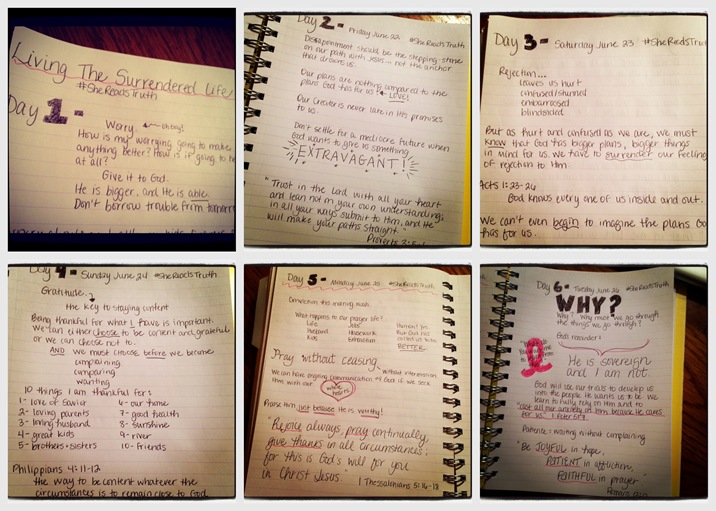 Living The Surrendered Life
#SheReadsTruth
Day 1-
Worry. oh boy!
How is my worrying going to make
anything better? How is it going to he
at all?
Give it to God.
He is bigger. and He is able.
Don't borrow trouble from tomorrow
Day 2- Friday June 22 #SheReadsTruth
Disappointment should be the stepping stone
on our path with Jesus... not the anchor
that drowns us.
Our plans are nothing compared to the
plans God has for us! LOVE!
Our Creator is never late in His promises
to us.
Don't settle for a mediocre future when
God wants to give us something
EXTRAVAGANT!
"Trust in the Lord with all your heart
and lean not on your own understanding;
in all your ways submit to Him, and He
will make your paths straight."
Proverbs 3:5-6
Day 3- Saturday June 23 #SheReadsTruth
Rejection...
leaves us hurt
confused/stunned
embarrassed
blindsided
But as hurt and confused as we are, we must
know that God has bigger plans, bigger things
in mind for us. We have to surrender our feelings
of rejection to Him.
Acts 1:23-26
God knows every one of us inside and out.
We can't even begin to imagine the plans Go
has for us.
Day 4- Sunday June 24 #SheReadsTruth
Gratitude.
the key to staying content
Being thankful for what I have is important.
We can either choose to be content and grateful
or we can choose not to.
AND we must choose before we become
complaining
comparing
wanting
10 things I am thankful for:
1- love of Savior 6- our home
2- loving parents 7- good health
3- loving husband 8- sunshine
4- great kids 9- river
5- brothers + sisters 10- friends
Philippians 4:11-12
the way to be content whatever the
circumstances is to remain close to God.
Day 5- Monday June 25 #SheReadsTruth
Conviction this morning mush.
What happens to our prayer life?
Life Jobs
Husband Housework
Kids Exhaustion
Human? Yes.
But God has
called us to
BETTER.
Pray without ceasing without intermission
We can have ongoing communication w/ God if we seek
Him with our whole hearts
Praise Him just because He is worthy!
"Rejoice always, pray continually,
give thanks in all circumstances;
for this is God's will for you
in Christ Jesus.
1 Thessalonians 5:16-18
Day 6- Tuesday June 26 #SheReadsTruth
WHY?
Why? Why must we go through
the things we go through?
God reminder:
He is sovereign
and I am not.
God will use our trials to develop us
into the people He wants us to be. We
learn to fully rely on Him and to
"cast all our anxiety on Him because He cares
for us." 1 Peter 5:7
Patience: waiting without complaining
"Be JOYFUL in hope,
PATIENT in affliction,
FAITHFUL in prayer